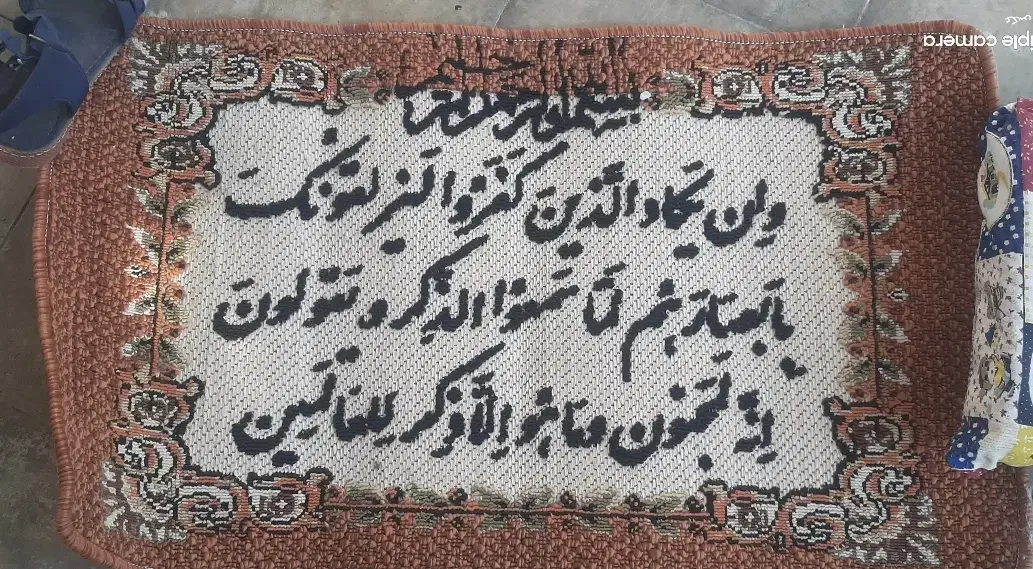 بسم الله الرحمن الرحیم
وإن یکاد الذین کفروا لیزلقونک
بابصارهم لما سمعوا الذکر و یقولون
إنه لمجنون وما هو إلا ذکر للعالمین